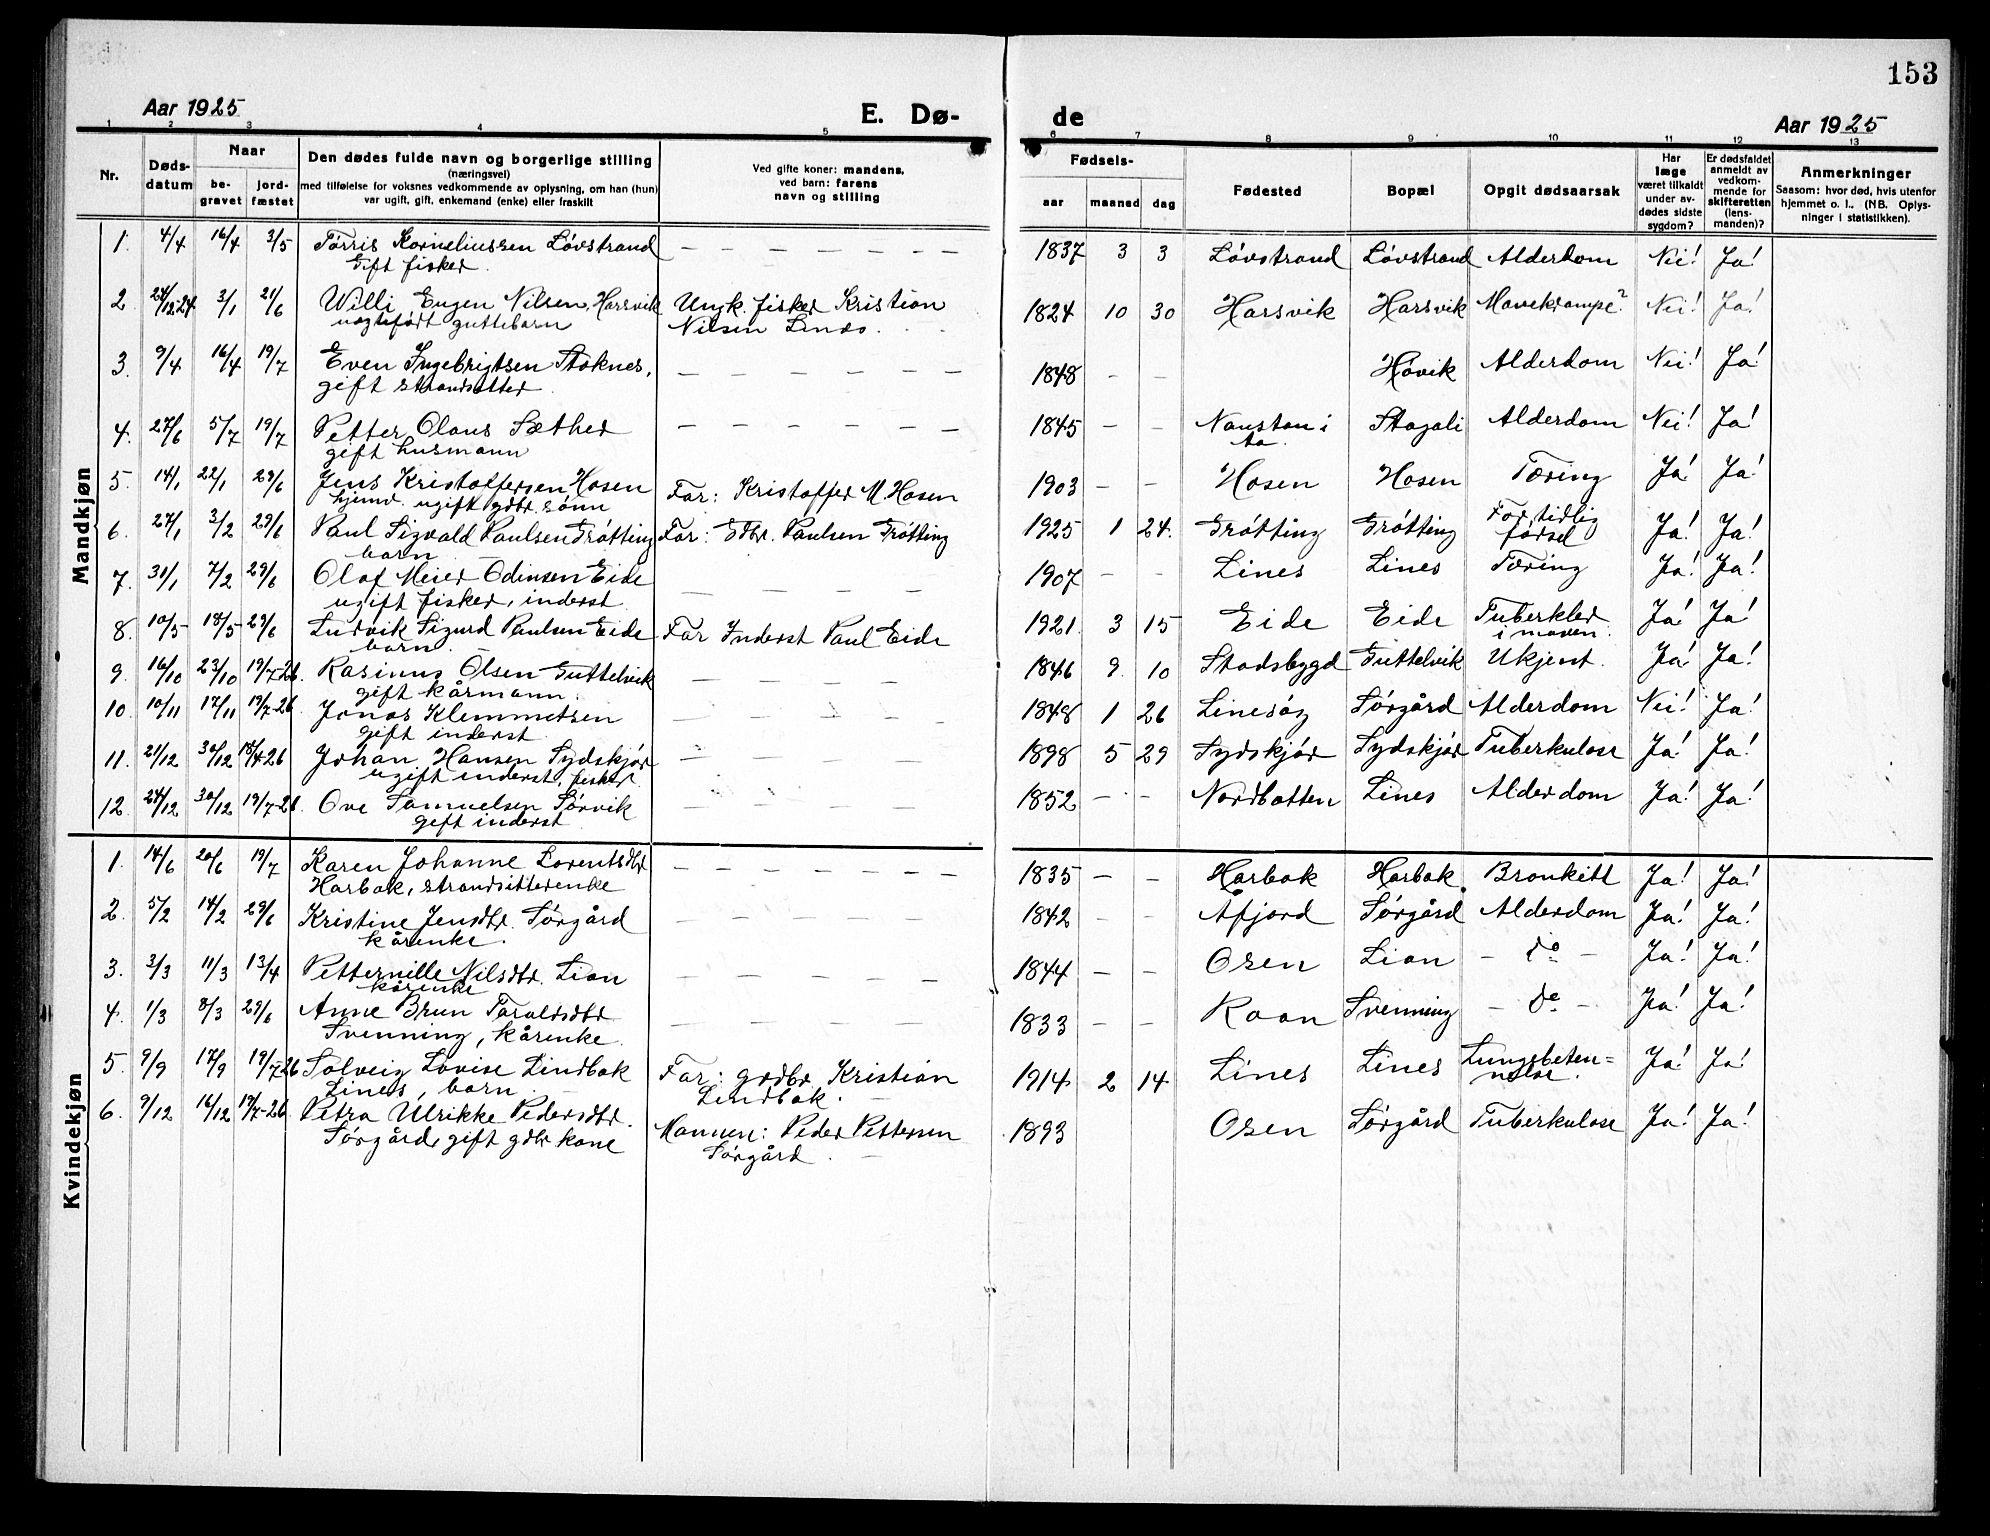 153
Aar 1925
E. Dø-
de
Aar 1925
1 2 3 4 5 6 7 8 9 10 11 12 13
Nr.
Døds-
datum
Naar
be-
gravet
jord-
fæstet
Den dødes fulde navn og borgerlige stilling
(næringsvei)
med tilføielse for voksnes vedkommende av oplysning, om han (hun)
var ugift, gift, enkemand (enke) eller fraskilt
Ved gifte koner: mandens,
ved barn: farens
navn og stilling
Fødsels-
aar maaned dag
Fødested
Bopæl
Opgit dødsaarsak
Har
læge
været tilkaldt
under av-
dødes sidste
sygdom?
Er dødsfaldet
anmeldt av
vedkom-
mende for
skifteretten
(lens-
manden)?
Anmerkninger
Saasom: hvor død, hvis utenfor
hjemmet o. l.. (NB. Oplys-
ninger i statistikken).
Mandkjøn
1. 4/4 16/4 3/5 Tørris Korneliussen Løvstrand — — — — — — 1837 3 3 Løvstrand Løvstrand Alderdom Nei! Ja!
Gift fisker.
2. 24/12-24 3/1 21/6 Willi Eugen Nilsen, Harsvik Ungk. fisker Kristian 1824 10 30 Harsvik Harsvik Mavekrampe? Nei! Ja!
uegtefødt guttebarn Nilsen Lines.
3. 9/4 16/4 19/7 Even Ingebrigtsen Stoknes, — — — — — — 1848 — — Hovik Alderdom Nei! Ja!
gift strandsitter
4. 27/6 5/7 19/7 Petter Olaus Sæther — — — — — — 1845 — — Naustan i Stagali Alderdom Nei! Ja!
gift husmann
5. 14/1 22/1 29/6 Jens Kristoffersen Hosen Far: Kristoffer M. Hosen 1903 — — Hosen Hosen Tæring Ja! Ja!
ugift gdbr. sønn
6. 27/1 3/2 29/6 Paul Sigvald Paulsen Grøtting Far: Gdbr. Paulsen Grøtting 1925 1 24. Grøtting Grøtting For tidlig Ja! Ja!
barn — fødsel
7. 31/1 7/2 29/6 Olaf Meier Odinsen Eide — — — — — 1907 — — Lines Lines Tæring Ja! Ja!
ugift fisker, inderst
8. 10/5 18/5 29/6 Ludvik Sigurd Paulsen Eide Far Inderst Paul Eide 1921. 3 15 Eide Eide Tuberkler Ja! Ja!
barn — i maven.
9. 16/10 23/10 19/7-26. Rasmus Olsen Guttelvik — — — — — 1846 9. 10 Stadsbygd Guttelvik Ukjent. Ja! Ja!
gift kårmann.
10. 10/11 17/11 19/7-26 Jonas Klemmetsen — — — — — 1848 1 26 Linesøy Sørgård Alderdom Nei! Ja!
gift inderst.
11. 21/12 30/12 18/4-26 Johan Hansen Sydskjør — — — — — 1898 5 29 Sydskjør Sydskjør Tuberkulose Ja! Ja!
ugift inderst, fisker
12. 24/12 30/12 19/7-26 Ove Samuelsen Sørvik — — — — — 1852 — — Nordbotten Lines Alderdom Ja! Ja!
gift inderst
Kvindekjøn
1. 14/6 20/6 19/7 Karen Johanne Lorentsdtr — — — — — — 1835 — — Harbak Harbak. Bronkitt Ja! Ja!
Harbak, strandsitterenke
2. 5/2 14/2 29/6 Kristine Jensdtr. Sørgård — — — — — — 1842 — — Åfjord Sørgård Alderdom Ja! Ja!
kårenke.
3. 3/3 11/3 13/4 Petternille Nilsdtr. Lian — — — — — — 1844 — — Osen Lian — do — Ja! Ja!
kårenke
4. 1/3 8/3 29/6 Anne Brun Taraldsdtr — — — — — — 1833 — — Roan Svenning — do — Ja! Ja!
Svenning, kårenke.
5. 9/9 17/9 19/7-26 Solveig Lovise Lindbak Far: grdbr. Kristian 1914 2 14 Lines Lines Lungebeten= Ja! Ja!
Lines, barn — Lindbak. — nelse.
6. 9/12 16/12 19/7-26 Petra Ulrikke Pedersdtr. Mannen: Peder Pettersen 1893 Osen Sørgård Tuberkulose Ja! Ja!
Sørgård, gift gdbr kone Sørgård. —